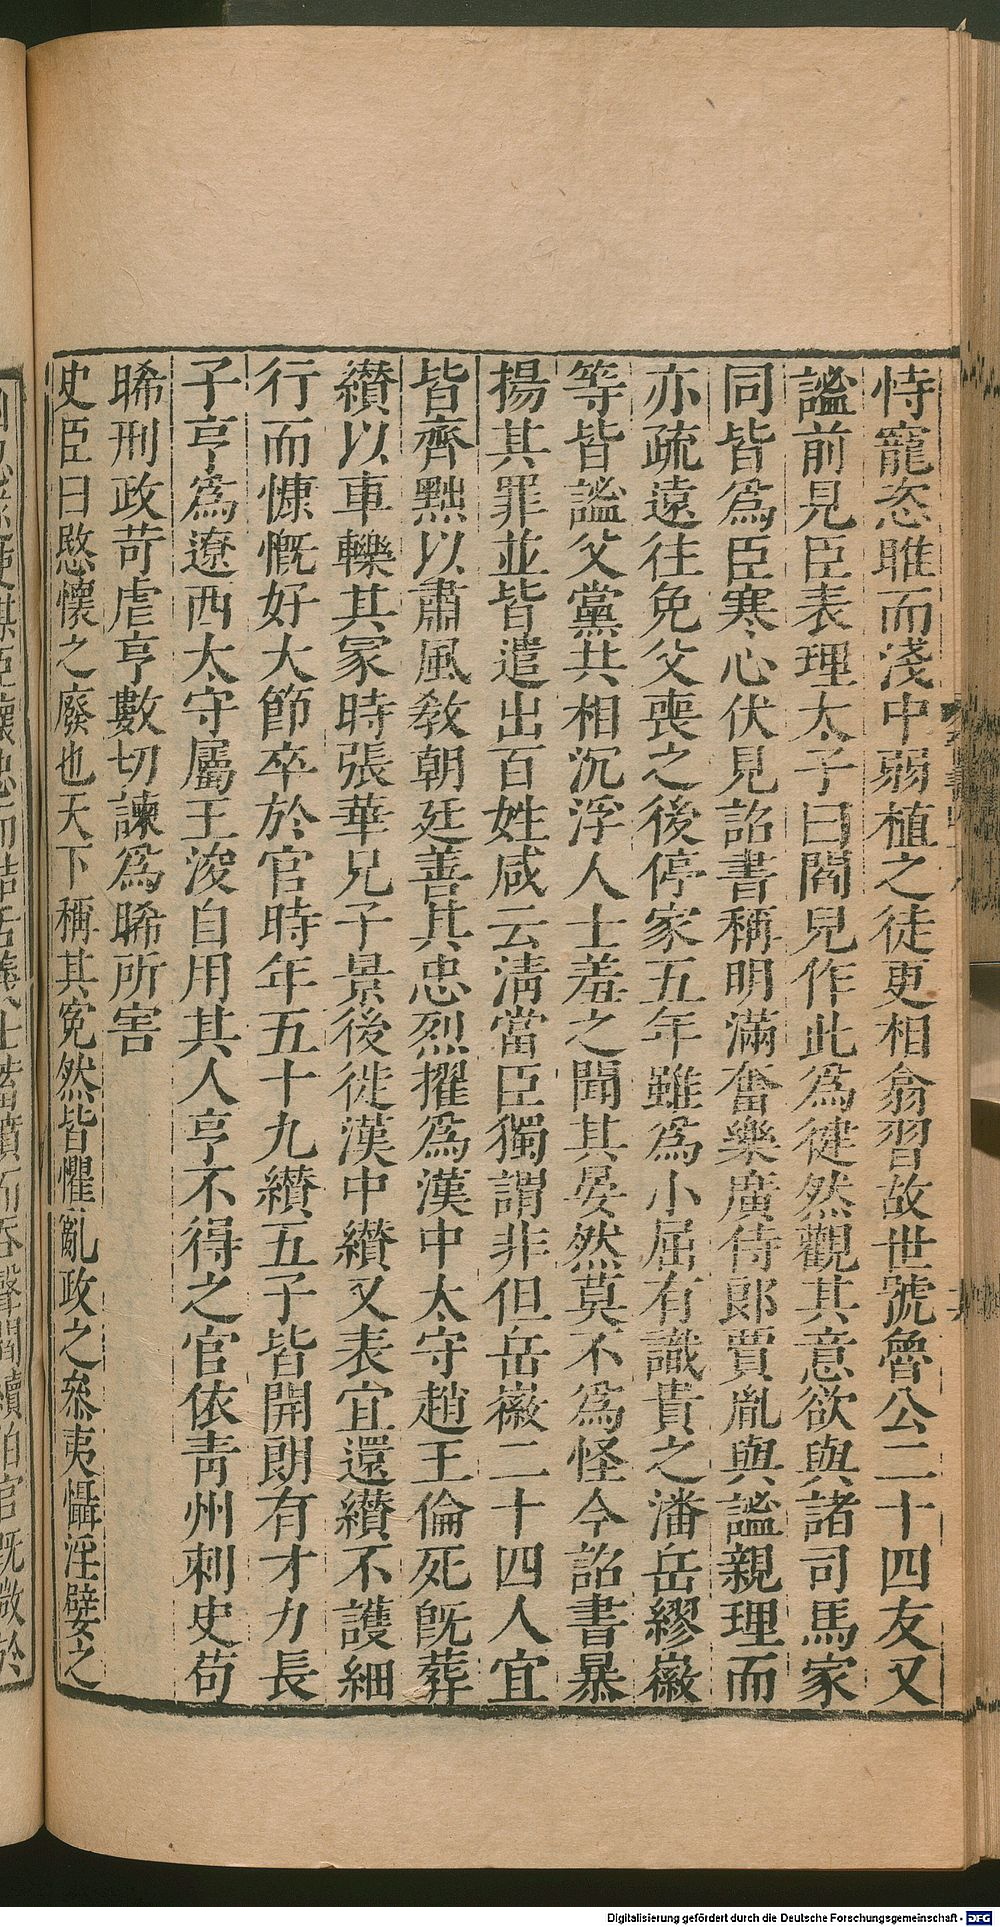 恃寵恣睢而淺中弱植之徒更相翕習故世號魯公二十四友又
謐前見臣表理太子曰閻兒作此為健然觀其意欲與諸司馬家
同皆為臣寒心伏見詔書稱明滿奮樂廣侍郎賈胤與謐親理而
亦疏遠往免父喪之後停家五年雖為小屈有識貴之潘岳繆徽
等皆謐父黨共相沉浮人士羞之聞其晏然莫不為怪今詔書暴
揚其罪並皆遣出百姓咸云清當臣獨謂非但岳徽二十四人宜
皆齊黜以肅風敎朝廷善其忠烈擢為漢中太守趙王倫死旣葬
纉以車轢其冢時張華兄子景後徙漢中纉又表宜還纉不護細
行而慷慨好大節卒於官時年五十九纉五子皆開朗有才力長
子亨為遼西太守屬王浚自用其人亨不得之官依青州刺史苟
晞刑政苛虐亨數切諫為晞所害
史臣曰愍懷之廢也天下稱其冤然皆懼亂政之叅夷懾淫嬖之
Digitalisierung gefördert durch die Deutsche Forschungsgemeinschaft - DFG